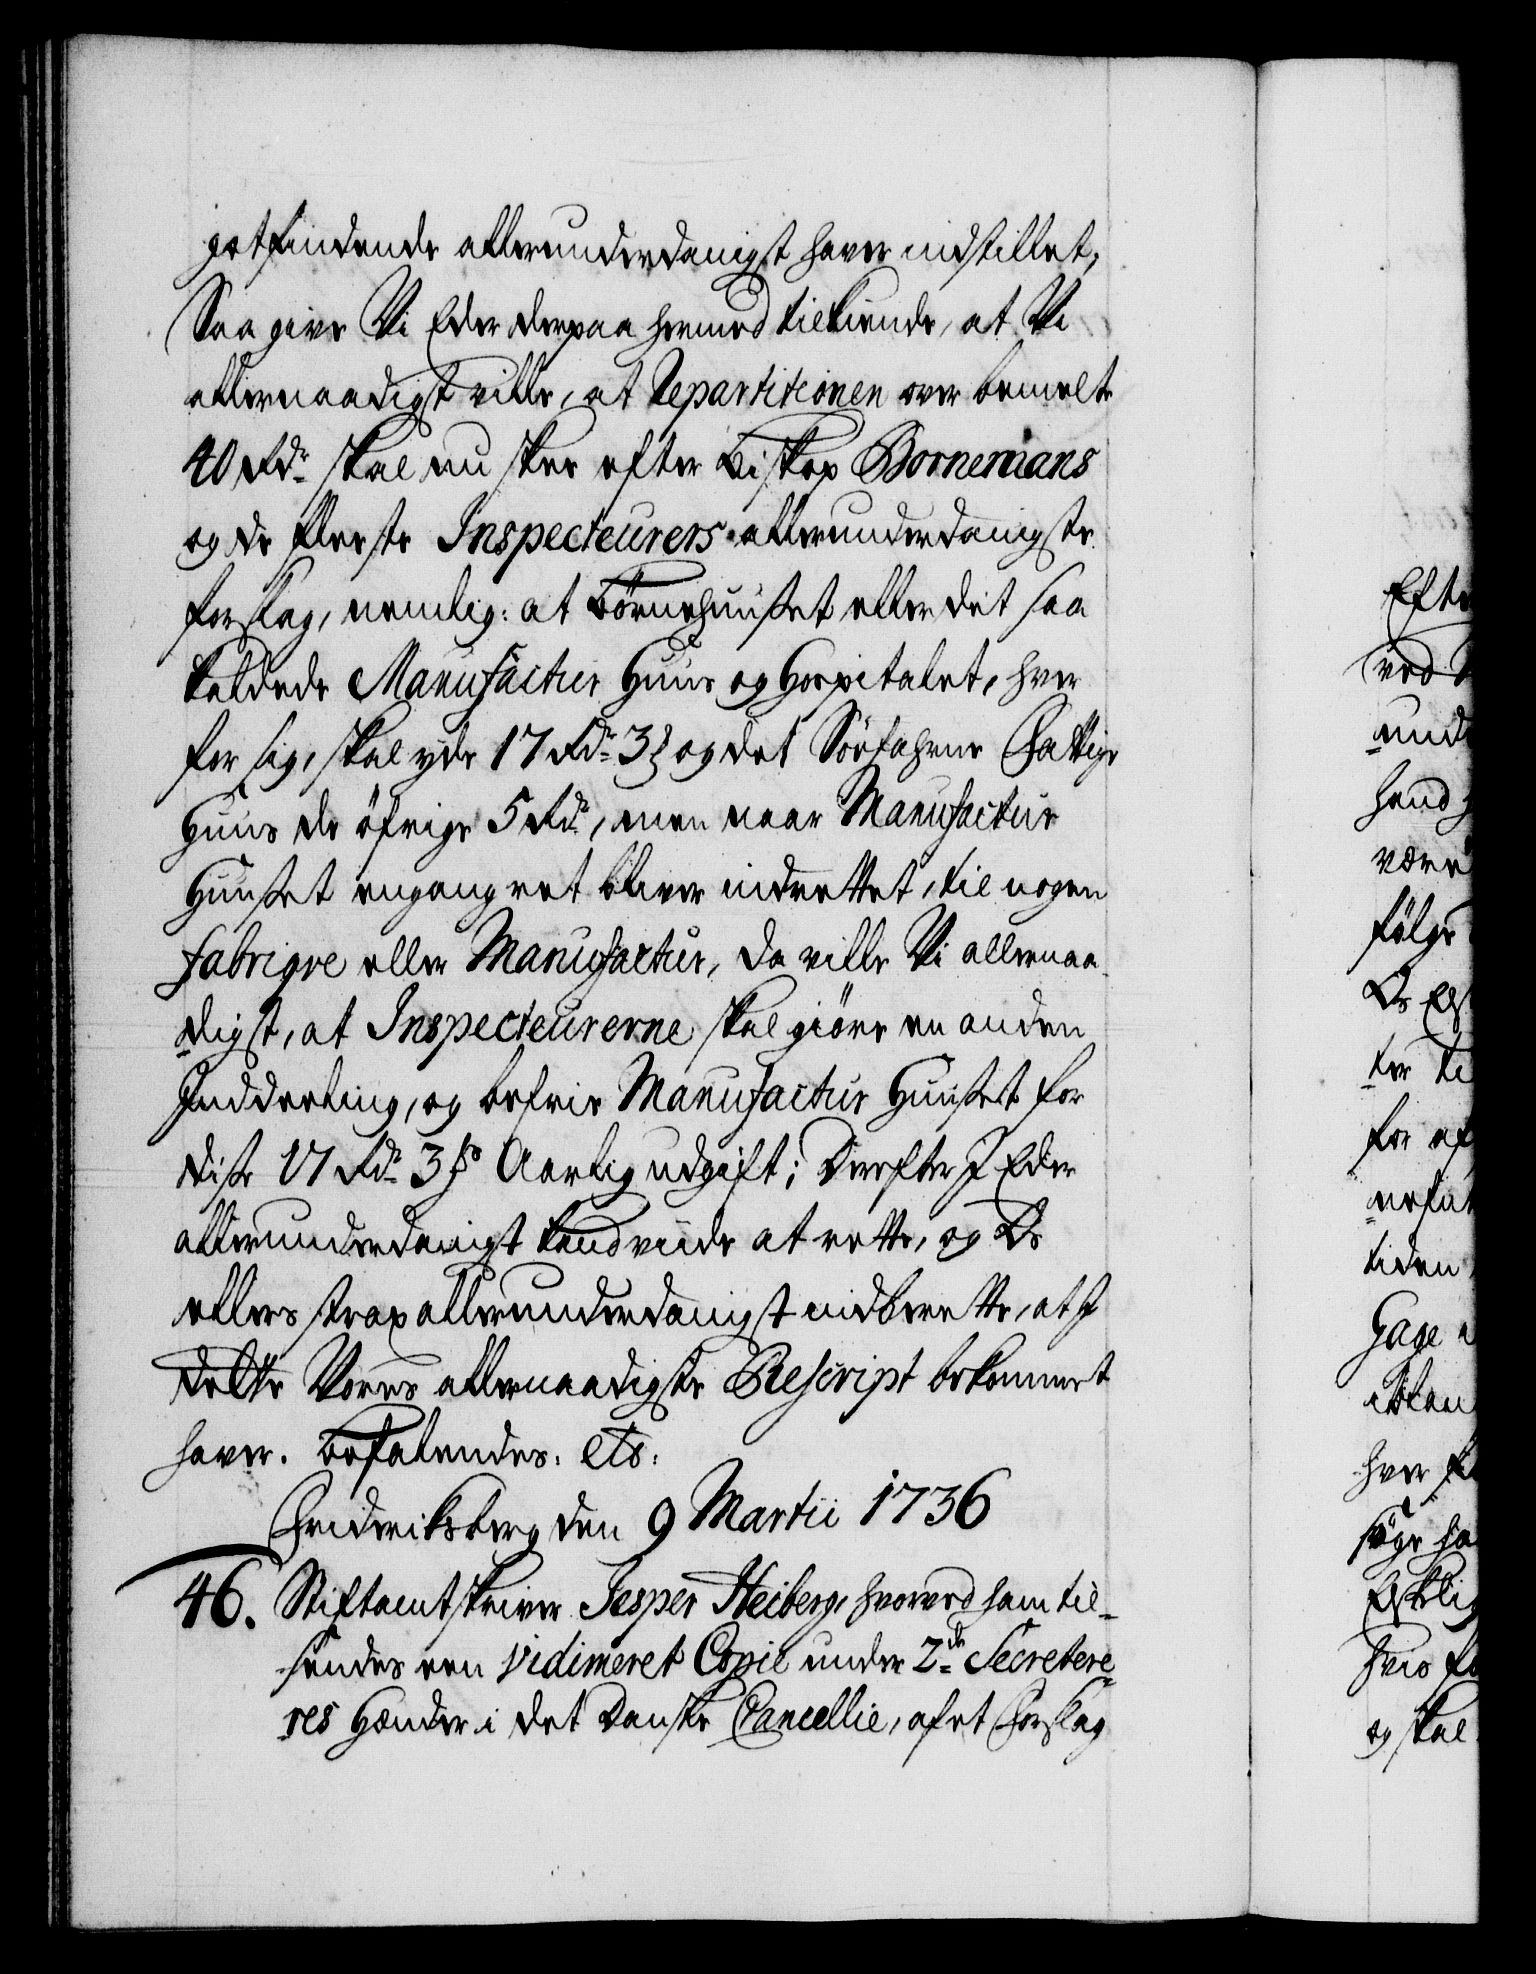 gotfindende allerunderdanigst haver indstillet,
Saa give Vi Eder derpaa hermed tilkiende, at Vi
allernaadigst ville, at Repartitionen over bemelte
40 Rdr. skal nu skee efter Biskop Bornemans
og de fleeste Inspecteurers allerunderdanigste
forslag, nemlig: at Börnehuuset eller det saa
kaldede Manufactur Huus og Hospitalet, hver
for sig, skal yde 17 Rdr. 3 og det Söefahrne Fattige
Huus de öfrige 5 Rdr., men naar Manufactur
Huuset engang ret bliver indrettet, til nogen
fabriqve eller Manufactur, da ville Vi allernaa-
digst, at Inspecteurerne skal giöre en anden
Inddeeling, og befrie Manufactur Huuset for
disse 17 Rdr. 3 Aarlig udgift; Derefter I Eder
allerunderdanigst kand viide at rette, og Os
ellers strax allerunderdanigst indberette, at I
dette Vores allernaadigste Rescript bekommet
haver. Befalendes: etc:
Friderichsberg den 9 Martii 1736
46. Stiftamtskriver Jesper Heiberg, hvorved ham til-
sendes een vidimeret Copie under 2de Secretere-
res Hænder i det Danske Cancellie, af et Forslag
Efte
ved
und
hand
være
fölge
Os
ter ti
for af
tiden
Gage
hver
söge ha
hvis
og skal